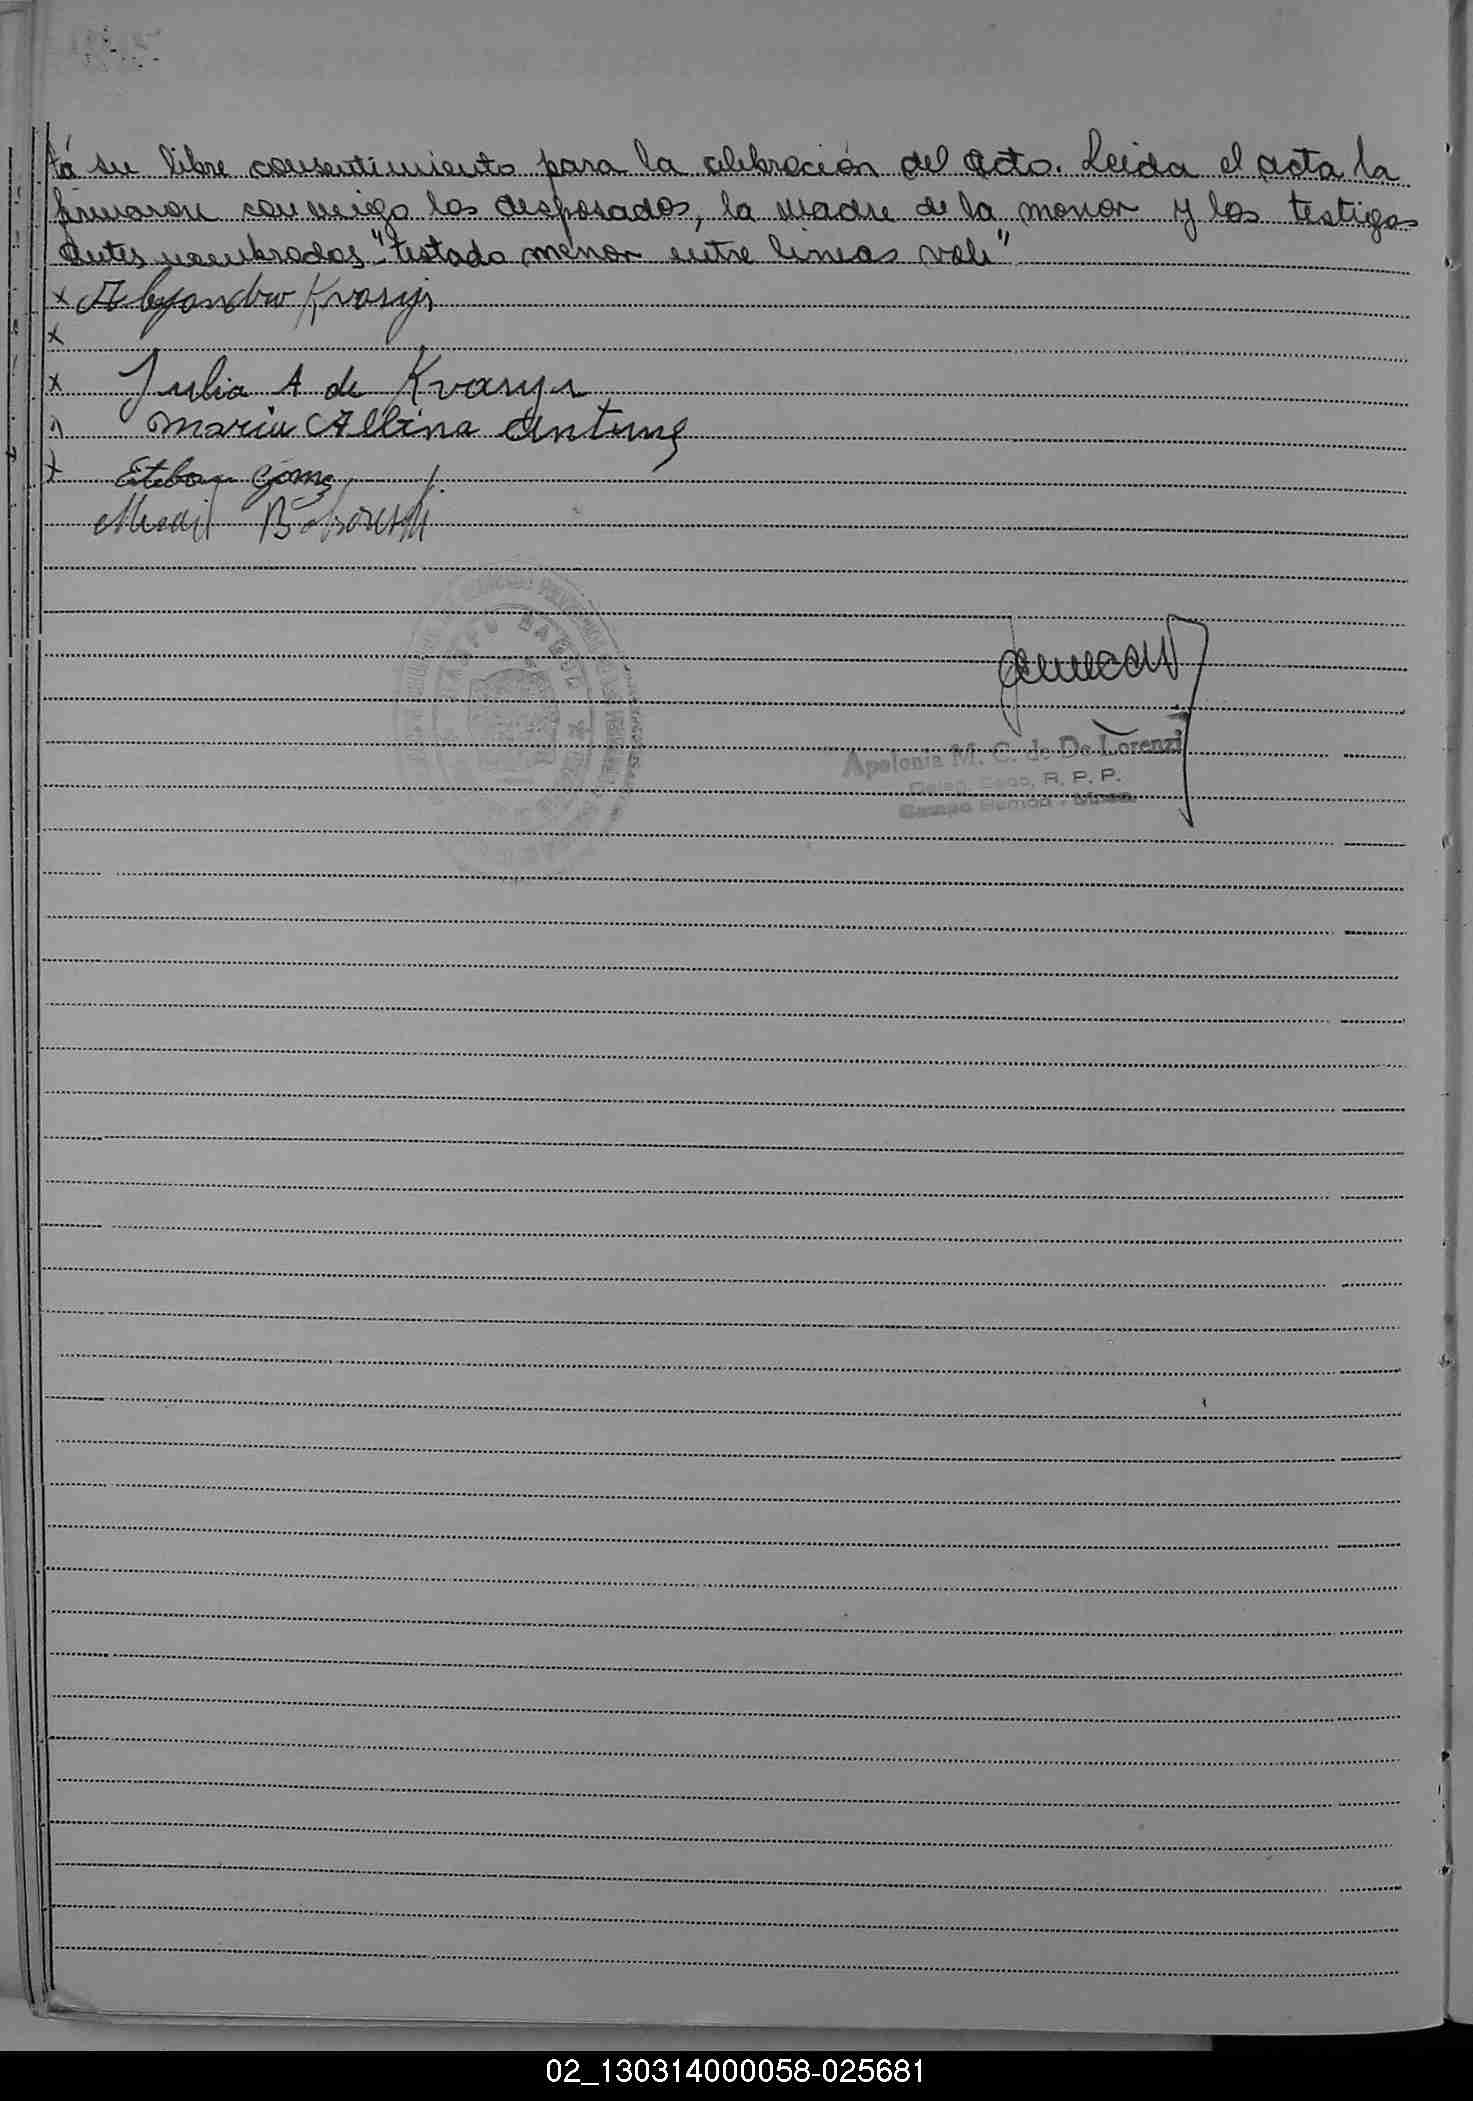 tá su libre consentimiento para la celebración del acto. Leida el acta la
firmaron conmigo los desposados, la madre de la menor y los testigos
antes nombrados "testado menor entre lineas vale"
x Alejandro Kvasyr
x
x Julia A de
Maria Albina Antunez
x Esteban Gomez
CAMPO RAMON
Apolonia M. C. de De Lorenzi
Deleg. Secc. R. P. P.
Campo Ramón - Mnes.
02_130314000058-025681